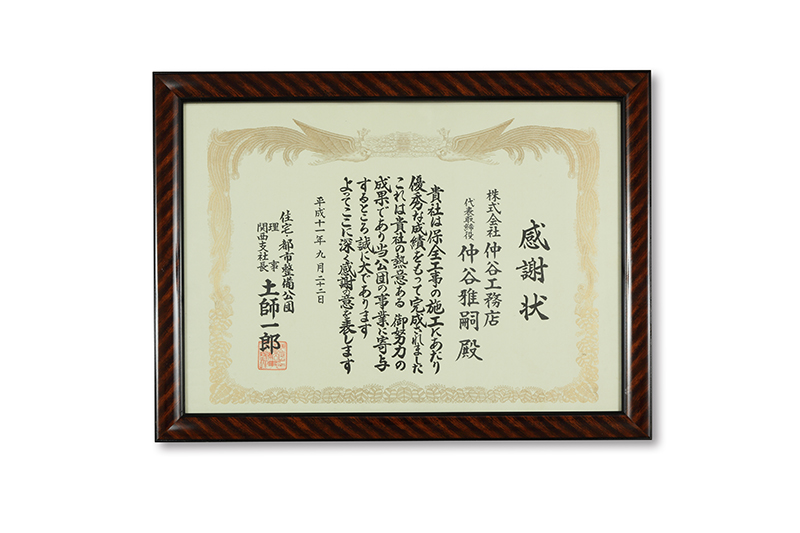 感謝状
株式会社 仲谷工務店
代表取締役 仲谷雅嗣 殿
貴社は保全工事の施工にあたり
優秀な成績をもって完成されました
これは貴社の熱意ある御努力の
成果であり当公団の事業に寄与
するところ誠に大であります
よってここに深く感謝の意を表します
平成十一年九月二十二日
住宅・都市整備公団
理事
関西支社長 土師一郎